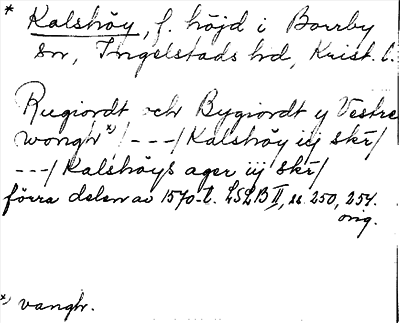 * Kalshöy, f. höjd i Borrby
sn, Ingelstads hd, Krist. l.
Rugiordt och Bygiordt y Vestre
wongh*) /---/ Kalshöy iij skr/
---/ Kalshöys ager iij skr/
förra delen av 1570-t. LSLB II, ss. 250, 254.
orig.
*) vangh.